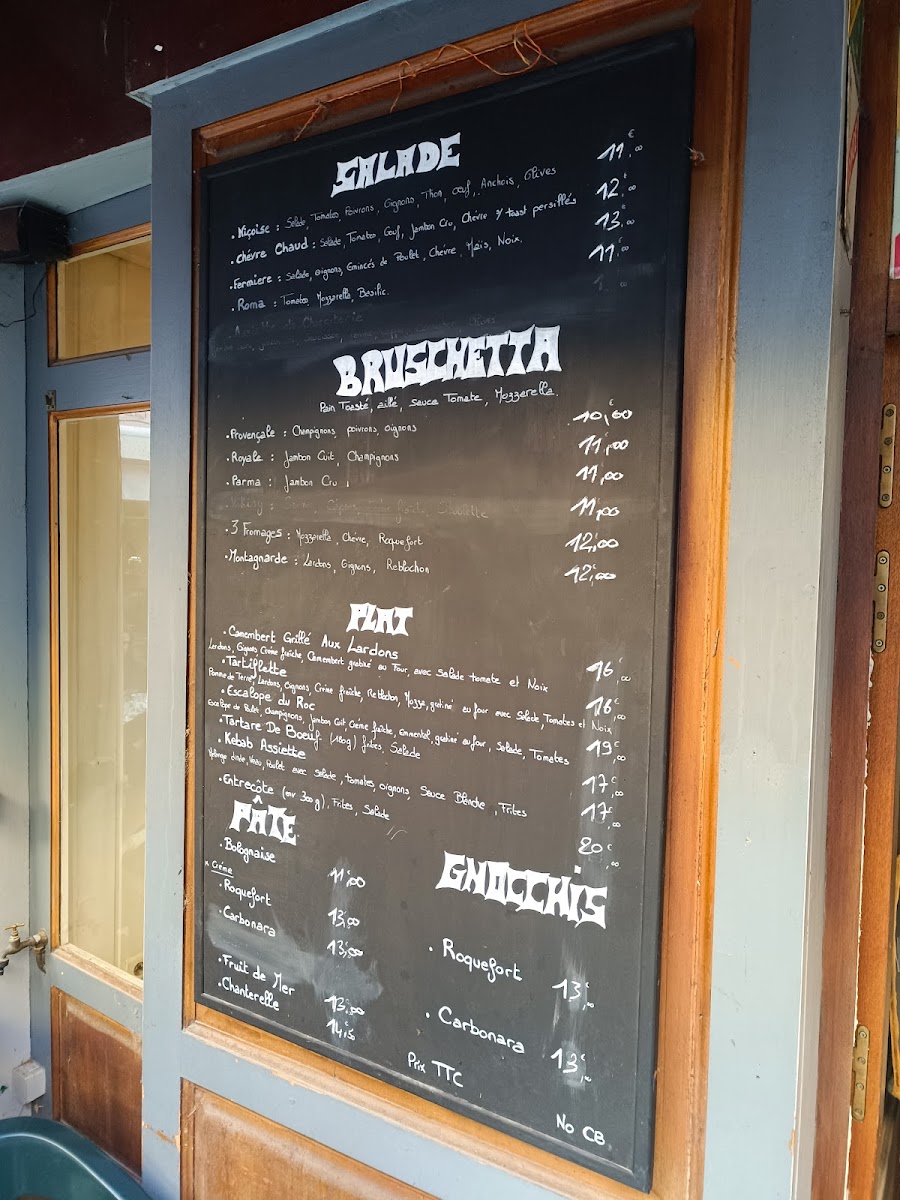 SALADE
• Niçoise : Salade, Tomates, Poivrons, Oignons, Thon, Oeuf, Anchois, Olives 11,€00
• Chévre Chaud : Salade, Tomates, Oeuf, Jambon Cru, Chévre s/ toast persillés 12,€00
• Fermiere : Salade, oignons, Emincés de Poulet, Chévre, Maïs, Noix. 13,€00
• Roma : Tomates, Mozzarella, Basilic. 11,€00
BRUSCHETTA
Pain Toasté, aillé, sauce Tomate, Mozzarella.
• Provençale : Champignons, poivrons, oignons 10,€00
• Royale : Jambon Cuit, Champignons 11,€00
• Parma : Jambon Cru 11,€00
11,€00
• 3 Fromages : Mozzarella, Chevre, Roquefort 12,€00
• Montagnarde : Lardons, Oignons, Reblochon 12,€00
PLAT
• Camembert Grillé Aux Lardons
Lardons, Oignons, Crème fraîche, Camembert gratiné au Four, avec salade tomate et Noix 16,€00
• Tartiflette
Pomme de Terre, Lardons, Oignons, Crème fraîche, Reblochon, Mozza, gratiné au four avec Salade, Tomates et Noix 16,€00
• Escalope du Roc
Escalope de Poulet, Champignons, Jambon Cuit, Crème fraîche, emmental, gratiné au four, Salade, Tomates 19,€00
• Tartare De Boeuf (180g) frites, Salade 17,€00
• Kebab Assiette
Mélange dinde, Veau, Poulet avec salade, tomates, oignons, Sauce Blanche, Frites 17,€00
• Entrecôte (env 300g), Frites, Salade 20,€00
PÂTE
• Bolognaise 11,€00
x Crème
• Roquefort 13,€00
• Carbonara 13,€00
• Fruit de Mer 13,€00
• Chanterelle 14,€50
GNOCCHIS
• Roquefort 13,€00
• Carbonara 13,€00
Prix TTC
No CB